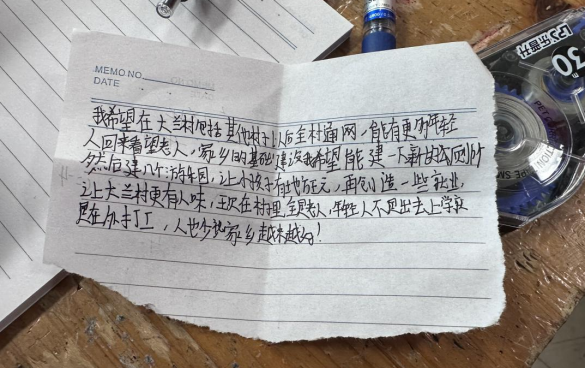 MEMO NO.
DATE
我希望在大兰村包括其他村子以后全村通网,能有更多年轻
人回来看望老人,家乡的基础建设我希望能建一下新的公厕所
然后建几个游乐园,让小孩子有地方玩,再创造一些就业,
让大兰村更有人味,现在村里全是老人,年轻人不是出去上学就
是在外打工,人也少 家乡越来越好!
乐普升
30